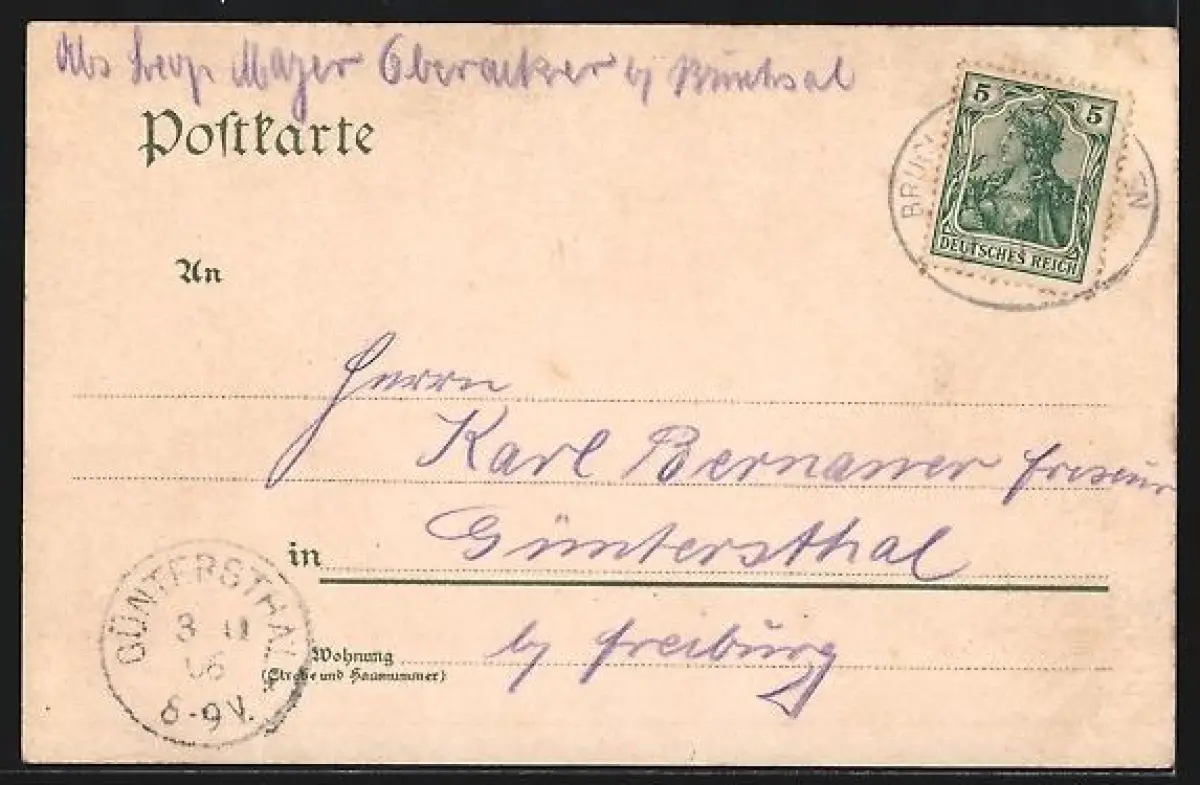 Abs Leop Mayer Oberacker b/ Bruchsal
Postkarte
5 5
DEUTSCHES REICH
BRUCH EN
An
Herrn
Karl Bernauer Friseur
in Güntersthal
by Freiburg
Wohnung
(Straße und Hausnummer)
GÜNTERSTHAL
3 11
06
8-9 V.